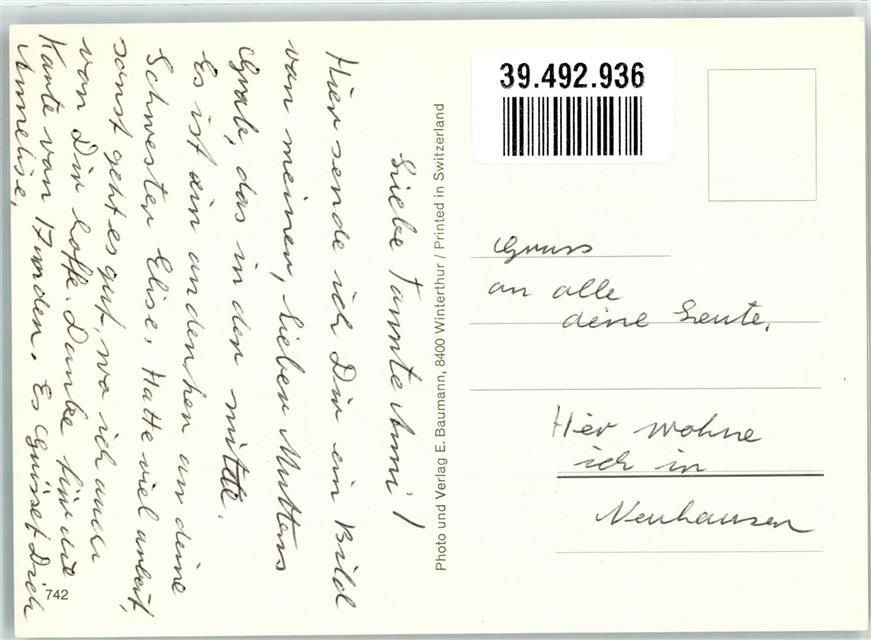 Liebe Tannte Anni!
Hier sende ich Dir ein Bild
von meinen, lieben Muttens
Grab, das in der mitte.
Es ist ein andenken an deine
Schwester Elise. Hatte viel arbeit,
sonst geht es gut, wo ich auch
von Dir hoffe. Danke für die
Karte von Es Grüsset Dich
Annelise,
742
Photo und Verlag E. Baumann, 8400 Winterthur / Printed in Switzerland
39.492.936
Gruss
an alle
deine Leute.
Hier wohne
ich in
Neuhausen